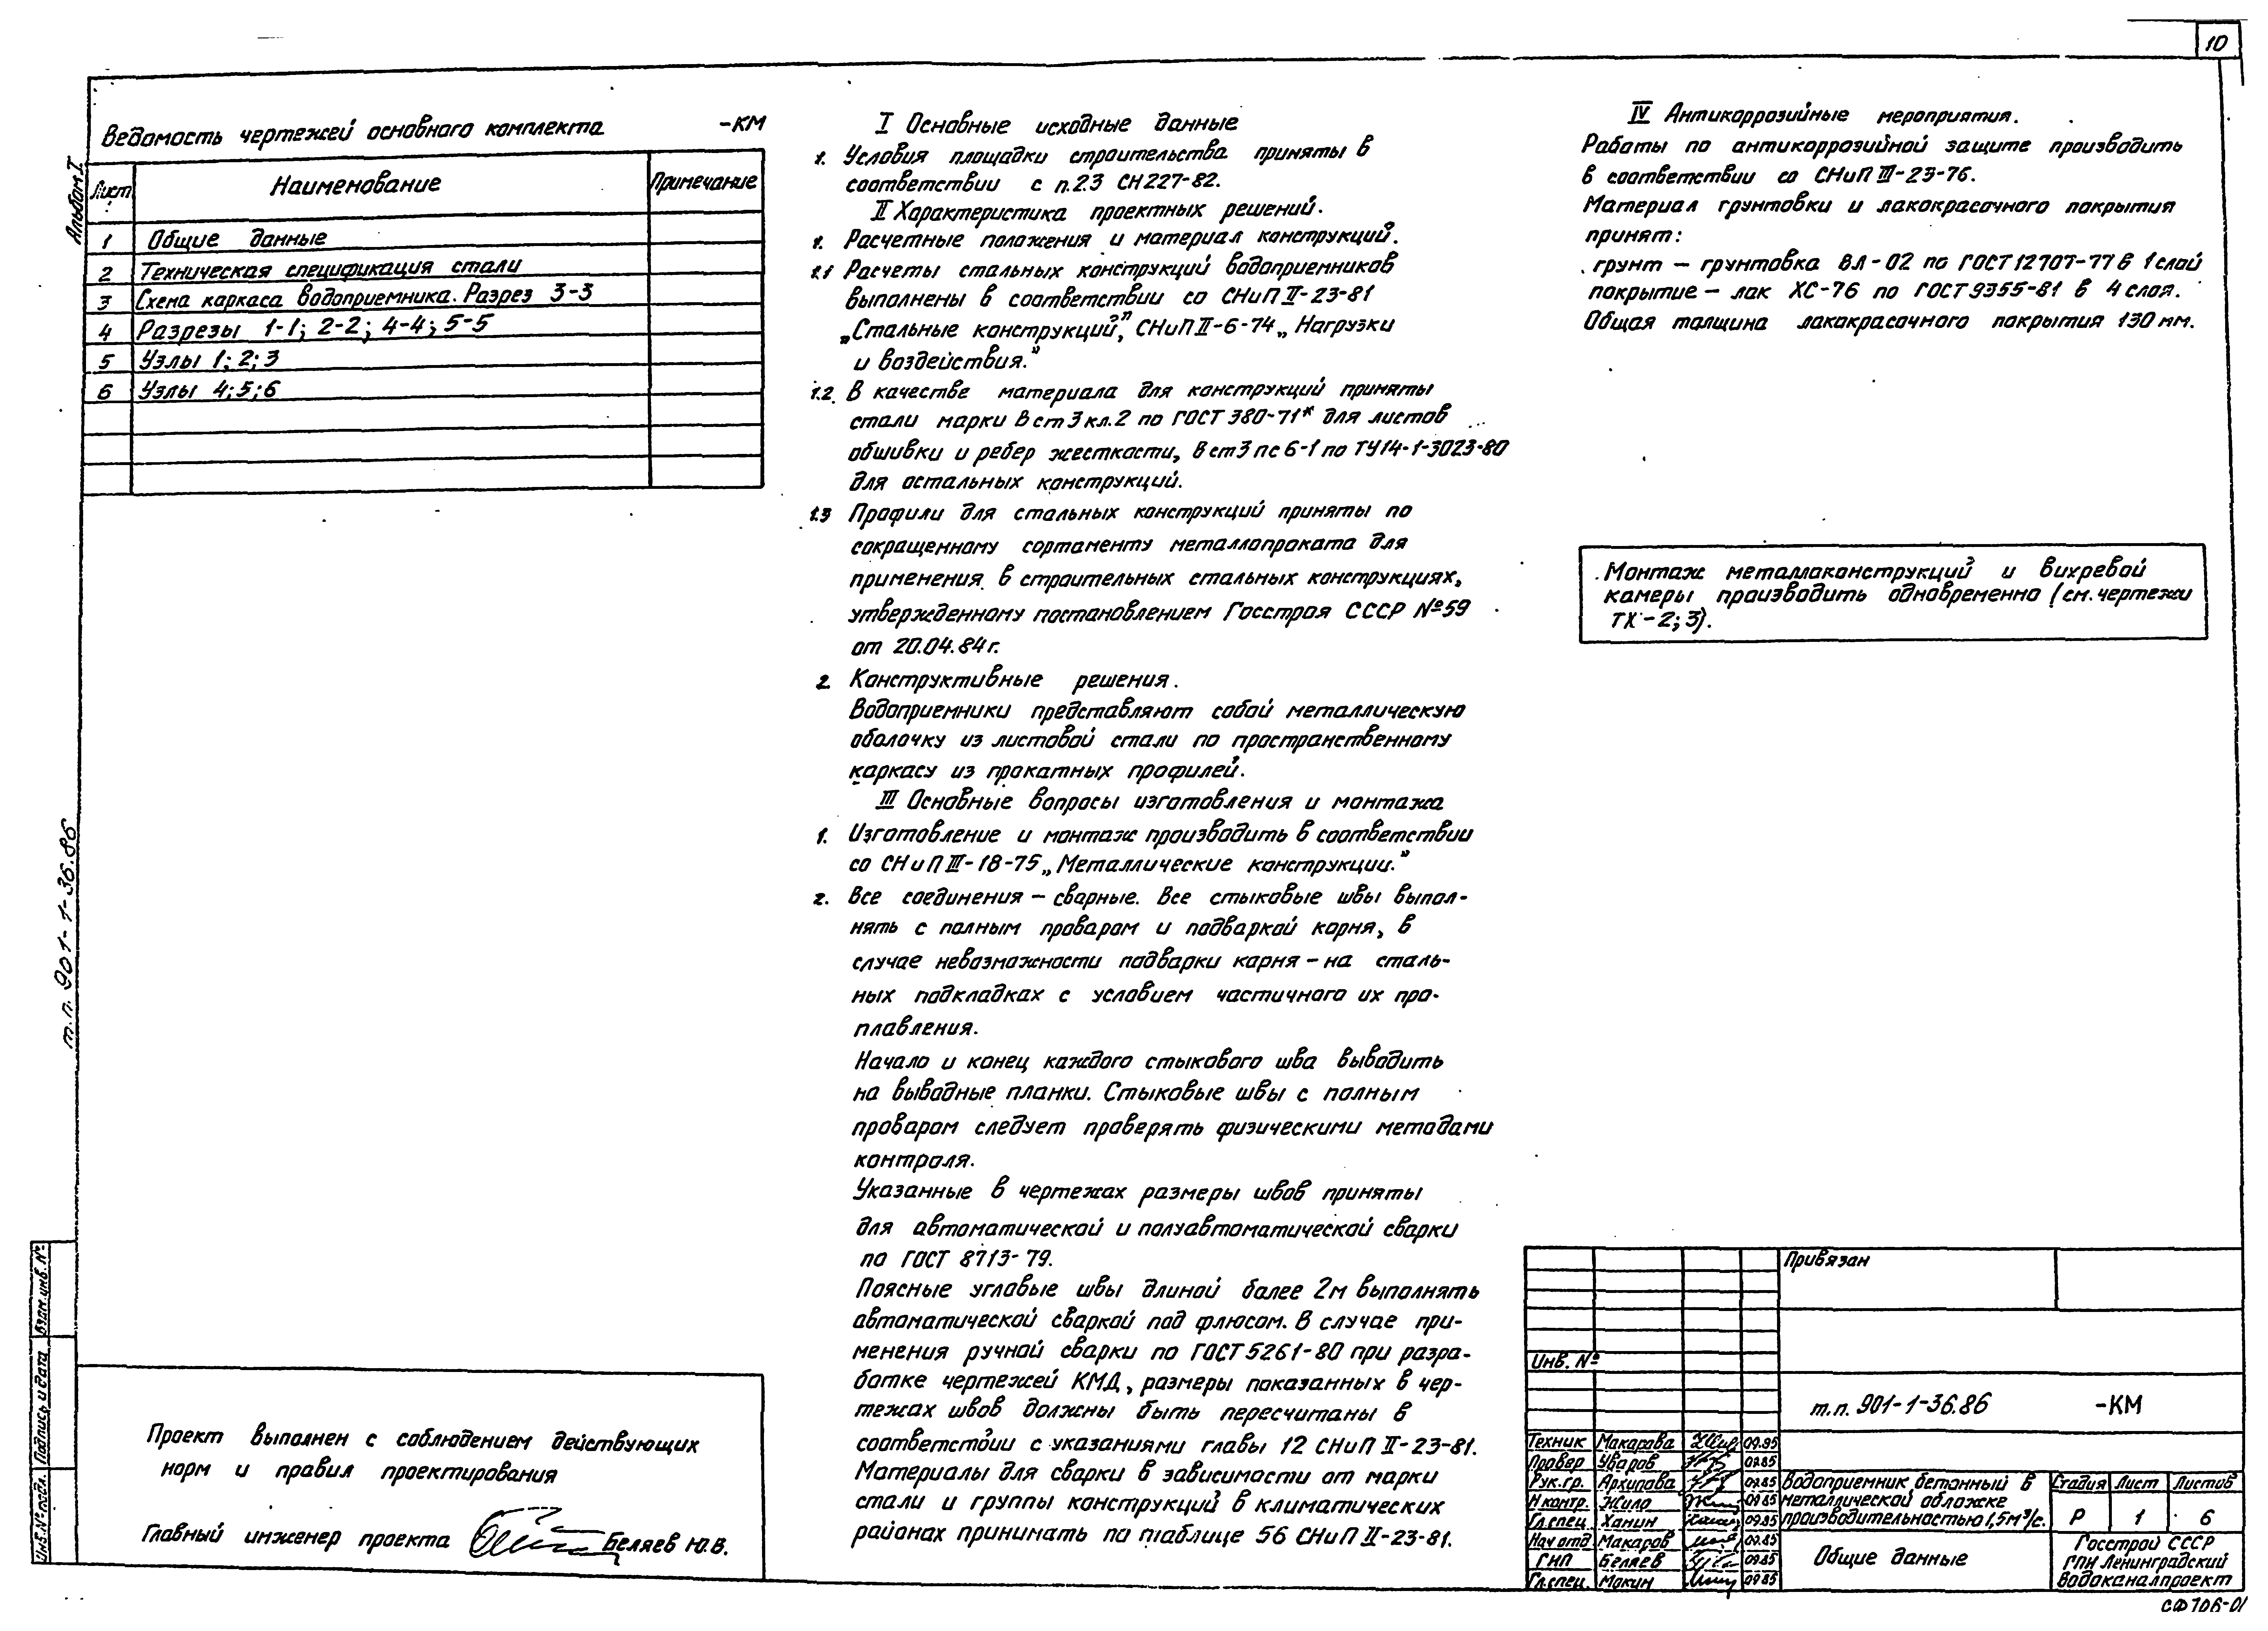 10
Альбом I
Ведомость чертежей основного комплекта -КМ
Лист Наименование Примечание
1 Общие данные
2 Техническая спецификация стали
3 Схема каркаса водоприемника. Разрез 3-3
4 Разрезы 1-1; 2-2; 4-4; 5-5
5 Узлы 1; 2; 3
6 Узлы 4; 5; 6
т.п. 901-1-36.86
Взам.инв.№
Подпись и дата
Инв.№ подл.
Проект выполнен с соблюдением действующих
норм и правил проектирования
Главный инженер проекта Беляев Ю.В.
I Основные исходные данные
1. Условия площадки строительства приняты в
соответствии с п.2.3 СН 227-82.
II Характеристика проектных решений.
1. Расчетные положения и материал конструкций.
1.1 Расчеты стальных конструкций водоприемников
выполнены в соответствии со СНиП II-23-81
„Стальные конструкций", СНиП II-6-74 „Нагрузки
и воздействия."
1.2. В качестве материала для конструкций приняты
стали марки Вст3кл.2 по ГОСТ 380-71* для листов
обшивки и ребер жесткости, Вст3пс6-1 по ТУ14-1-3023-80
для остальных конструкций.
1.3 Профили для стальных конструкций приняты по
сокращенному сортаменту металлопроката для
применения в строительных стальных конструкциях,
утвержденному постановлением Госстроя СССР №59
от 20.04.84г.
2 Конструктивные решения.
Водоприемники представляют собой металлическую
оболочку из листовой стали по пространственному
каркасу из прокатных профилей.
III Основные вопросы изготовления и монтажа
1. Изготовление и монтаж производить в соответствии
со СНиП III-18-75 „Металлические конструкции."
2. Все соединения - сварные. Все стыковые швы выпол-
нять с полным проваром и подваркой корня, в
случае невозможности подварки корня - на сталь-
ных подкладках с условием частичного их про-
плавления.
Начало и конец каждого стыкового шва выводить
на выводные планки. Стыковые швы с полным
проваром следует проверять физическими методами
контроля.
Указанные в чертежах размеры швов приняты
для автоматической и полуавтоматической сварки
по ГОСТ 8713-79.
Поясные угловые швы длиной более 2м выполнять
автоматической сваркой под флюсом. В случае при-
менения ручной сварки по ГОСТ 5261-80 при разра-
ботке чертежей КМД, размеры показанных в чер-
тежах швов должны быть пересчитаны в
соответствии с указаниями главы 12 СНиП II-23-81.
Материалы для сварки в зависимости от марки
стали и группы конструкций в климатических
районах принимать по таблице 56 СНиП II-23-81.
IV Антикоррозийные мероприятия.
Работы по антикоррозийной защите производить
в соответствии со СНиП III-23-76.
Материал грунтовки и лакокрасочного покрытия
принят:
грунт - грунтовка ВЛ-02 по ГОСТ 12707-77 в 1слой
покрытие - лак ХС-76 по ГОСТ 9355-81 в 4 слоя.
Общая толщина лакокрасочного покрытия 130 мм.
Монтаж металлоконструкций и вихревой
камеры производить одновременно (см. чертежи
ТХ-2; 3).
Привязан
Инв. №
т.п. 901-1-36.86 -КМ
Техник Макарова 09.85
Провер Уваров 09.85
Рук.гр. Архипова 09.85
Н.контр. Жило 09.85
Гл.спец. Ханин 09.85
Нач.отд Макаров 09.85
ГИП Беляев 09.85
Гл.спец. Мокин 09.85
Водоприемник бетонный в
металлической обложке
производительностью 1,5м³/с.
Стадия Лист Листов
Р 1 6
Общие данные
Госстрой СССР
ГПИ Ленинградский
Водоканалпроект
СФ 706-01